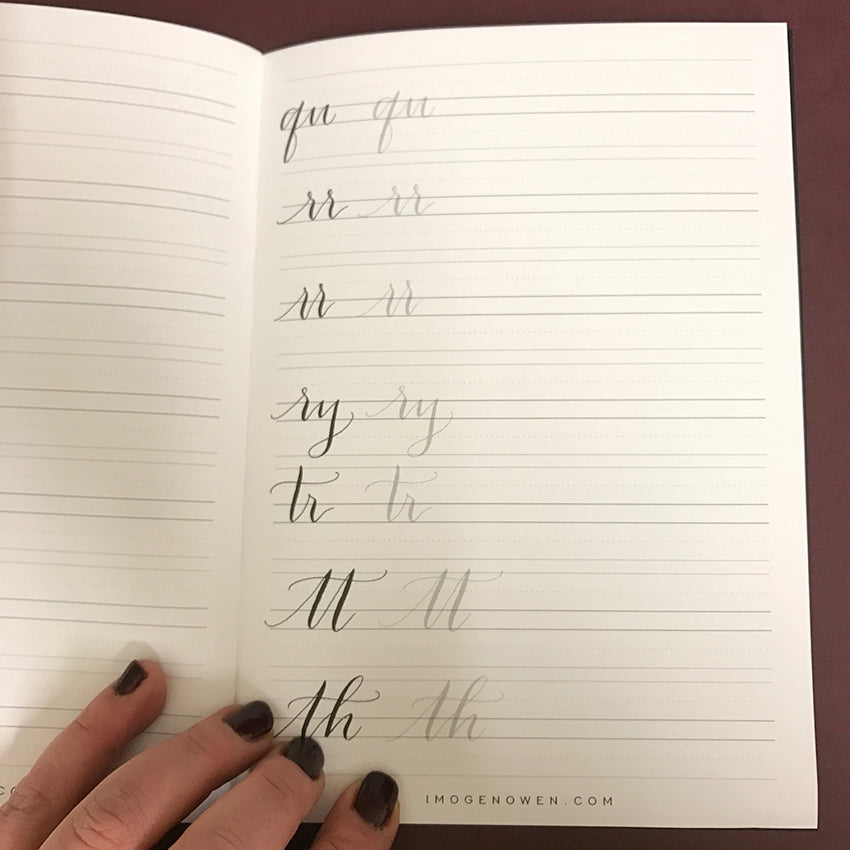 qu qu
rr rr
rr rr
ry ry
tr tr
tt tt
th th
IMOGENOWEN.COM